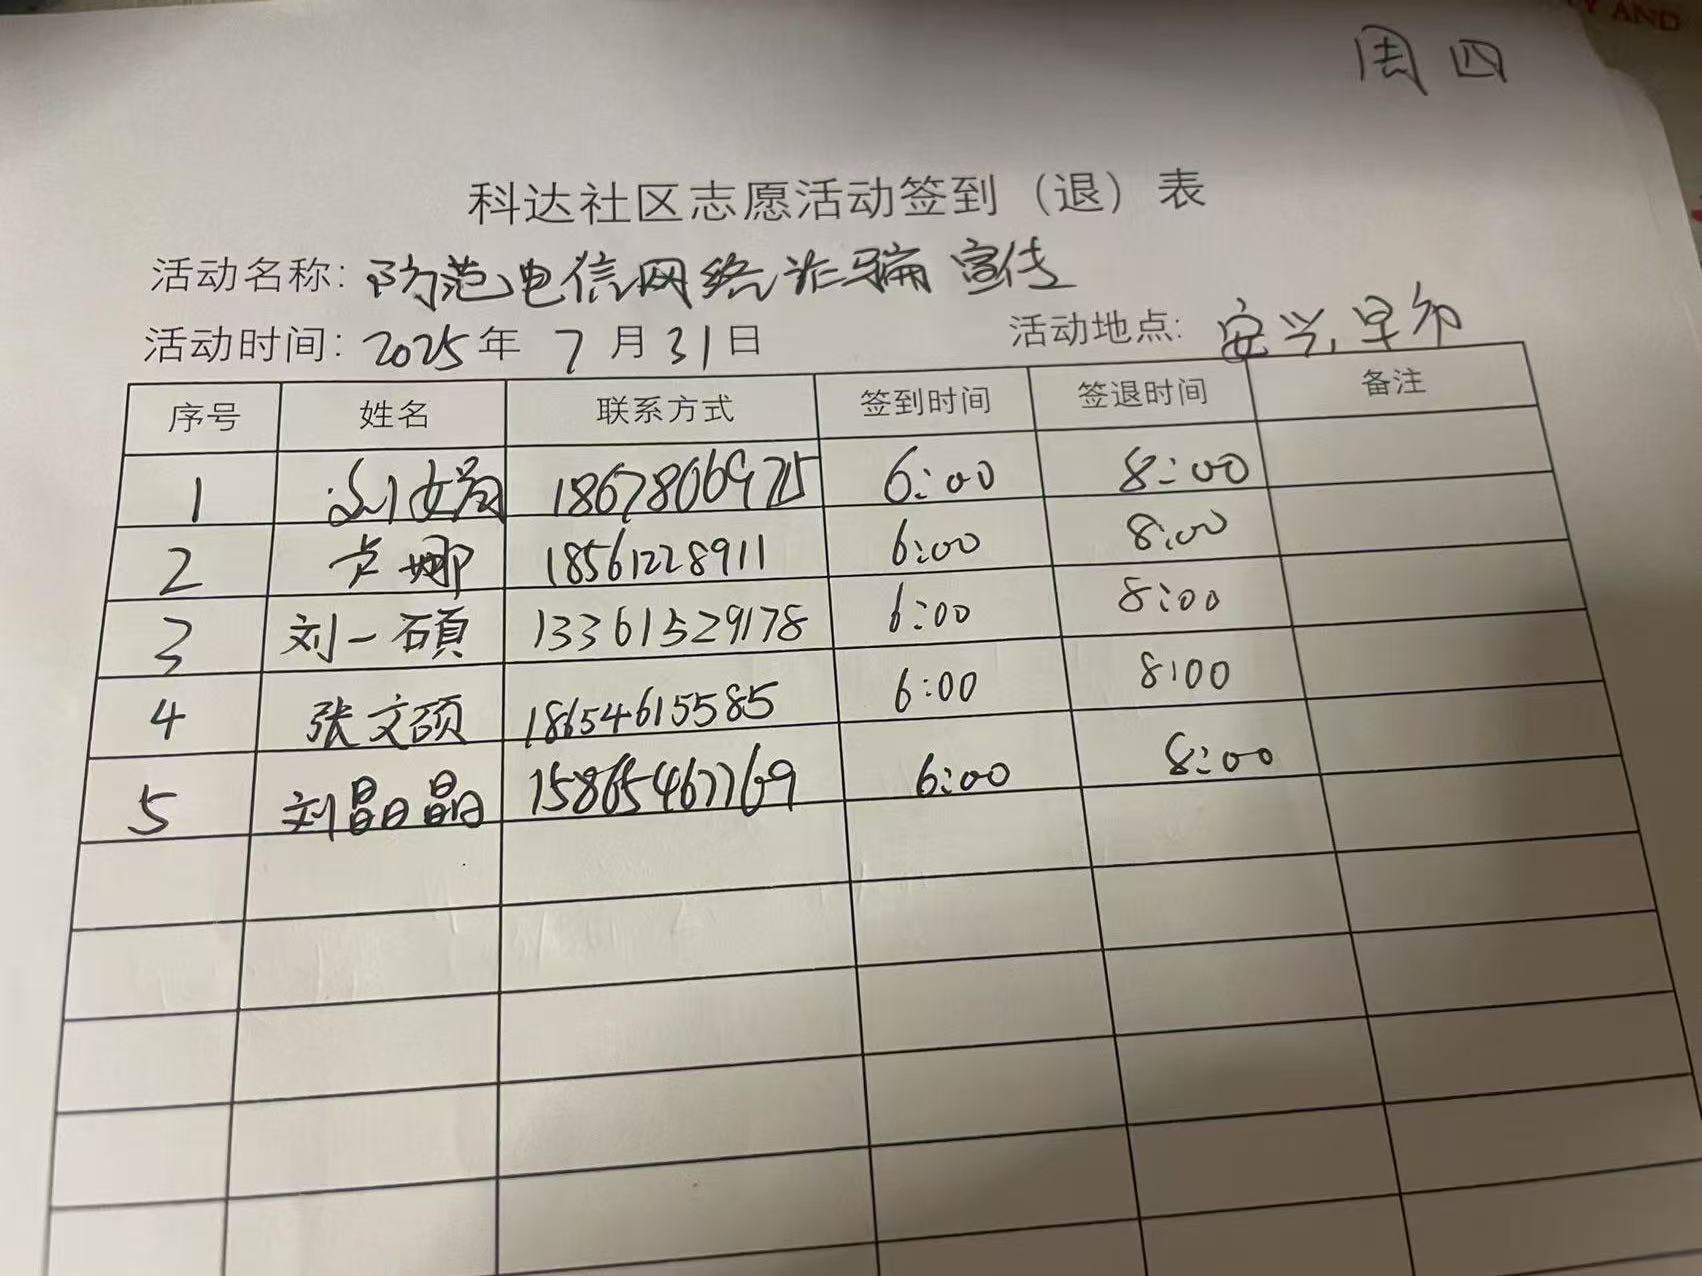 AND
周四
科达社区志愿活动签到（退）表
活动名称: 防范电信网络诈骗宣传
活动时间: 2025年 7月31日 活动地点: 安兴早市
序号 姓名 联系方式 签到时间 签退时间 备注
1 刘 18678069715 6:00 8:00
2 卢娜 18561228911 6:00 8:00
3 刘一硕 13361529178 6:00 8:00
4 张文硕 18654615585 6:00 8:00
5 刘晶晶 15865467769 6:00 8:00